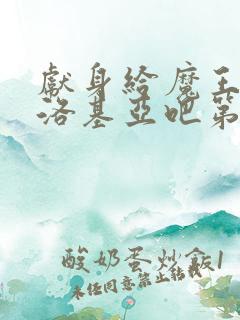 獻身給魔王
洛基亞吧第
酸奶蛋炒飯1
未經同意禁止轉載